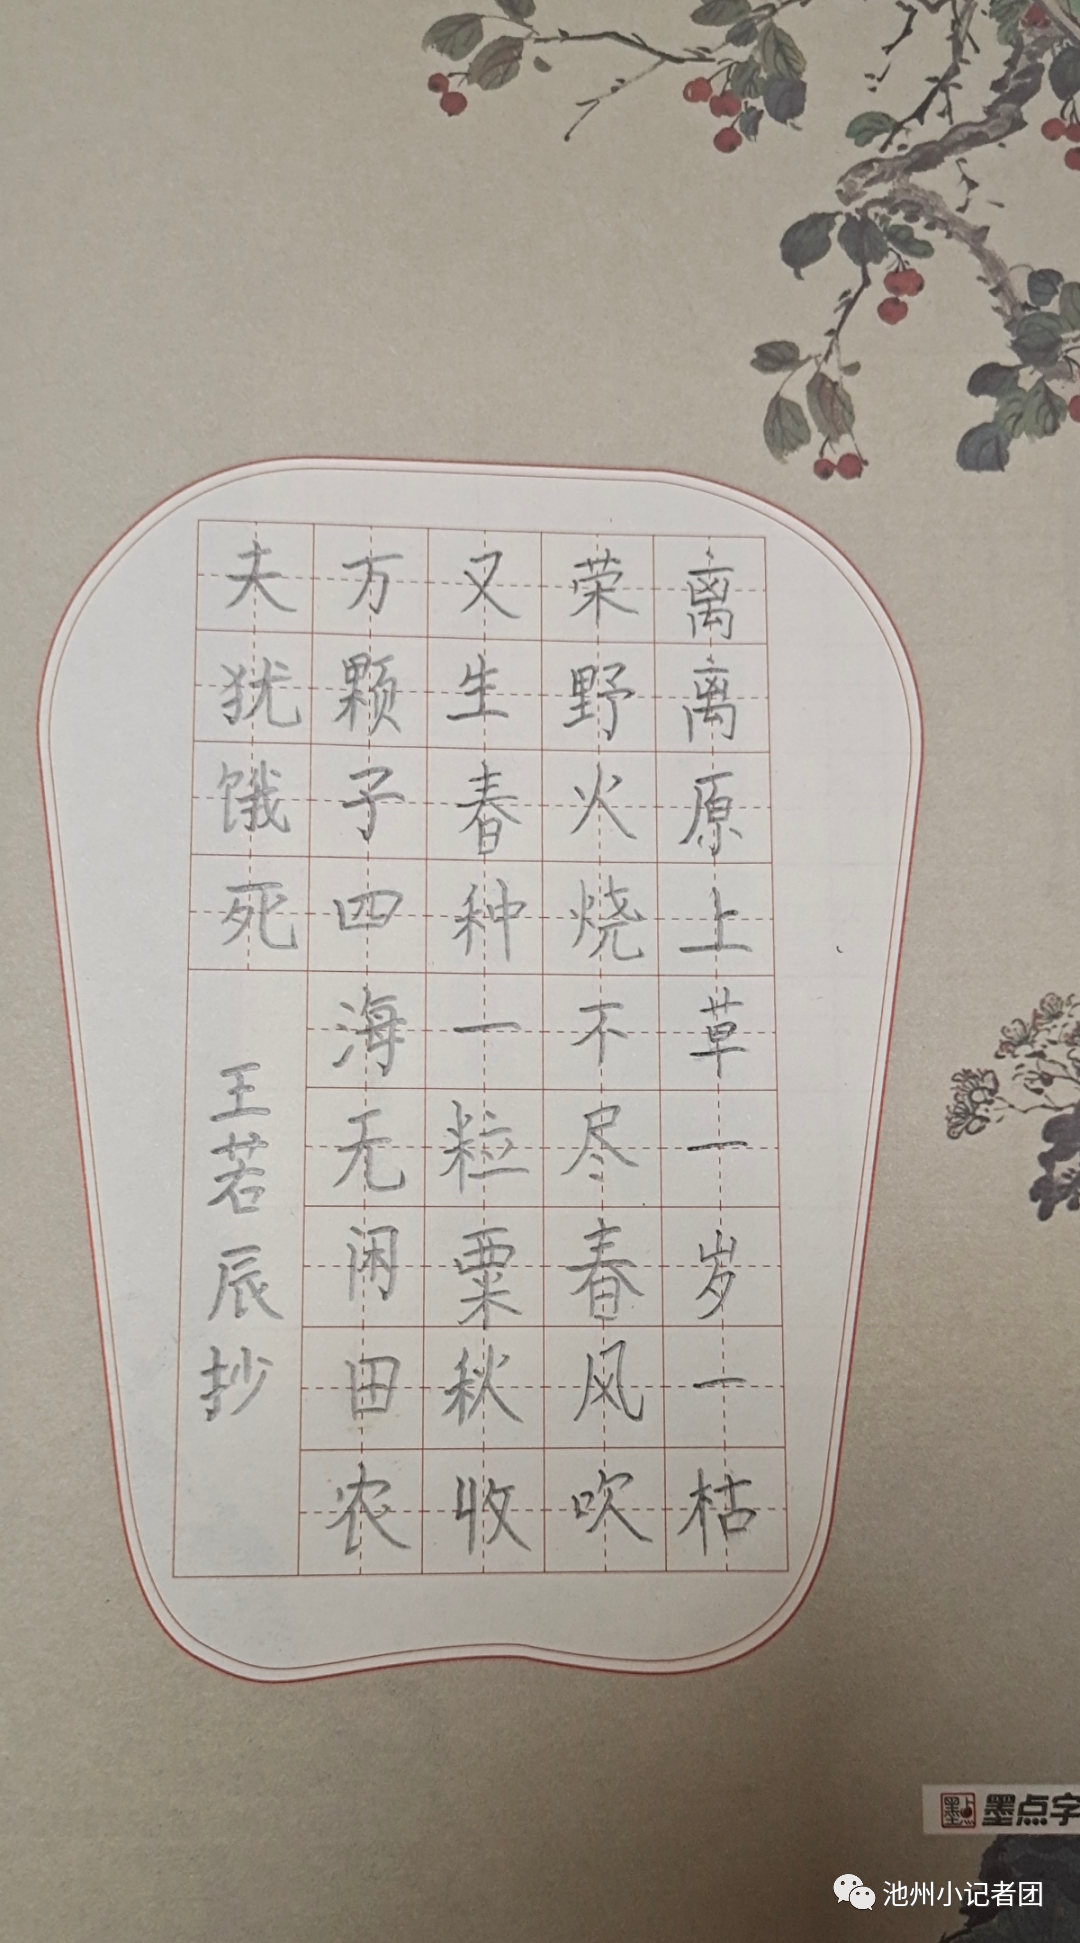 离离原上草一岁一枯
荣野火烧不尽春风吹
又生春种一粒粟秋收
万颗子四海无闲田农
夫犹饿死
王若辰抄
墨点字
池州小记者团